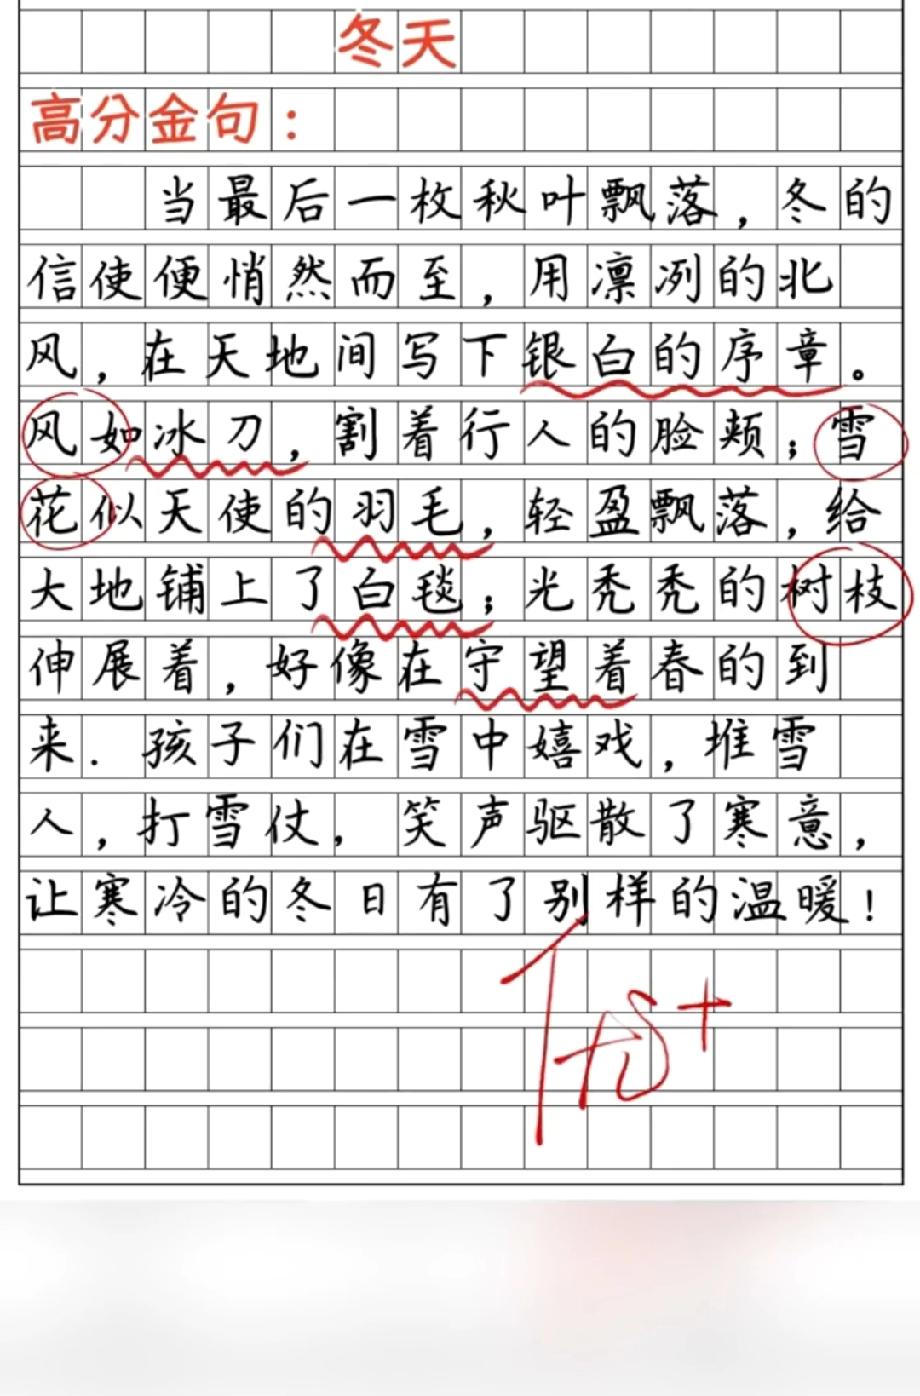 冬天
高分金句：
当最后一枚秋叶飘落，冬的
信使便悄然而至，用凛冽的北
风，在天地间写下银白的序章。
风如冰刀，割着行人的脸颊；雪
花似天使的羽毛，轻盈飘落，给
大地铺上了白毯；光秃秃的树枝
伸展着，好像在守望着春的到
来．孩子们在雪中嬉戏，堆雪
人，打雪仗，笑声驱散了寒意，
让寒冷的冬日有了别样的温暖！